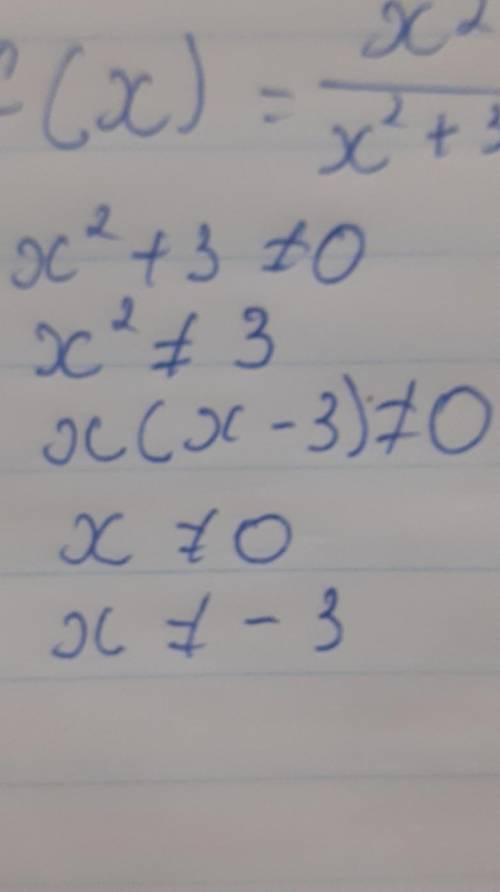 (x) = x² / x² + 3
x² + 3 ≠ 0
x² ≠ 3
x(x - 3) ≠ 0
x ≠ 0
x ≠ - 3